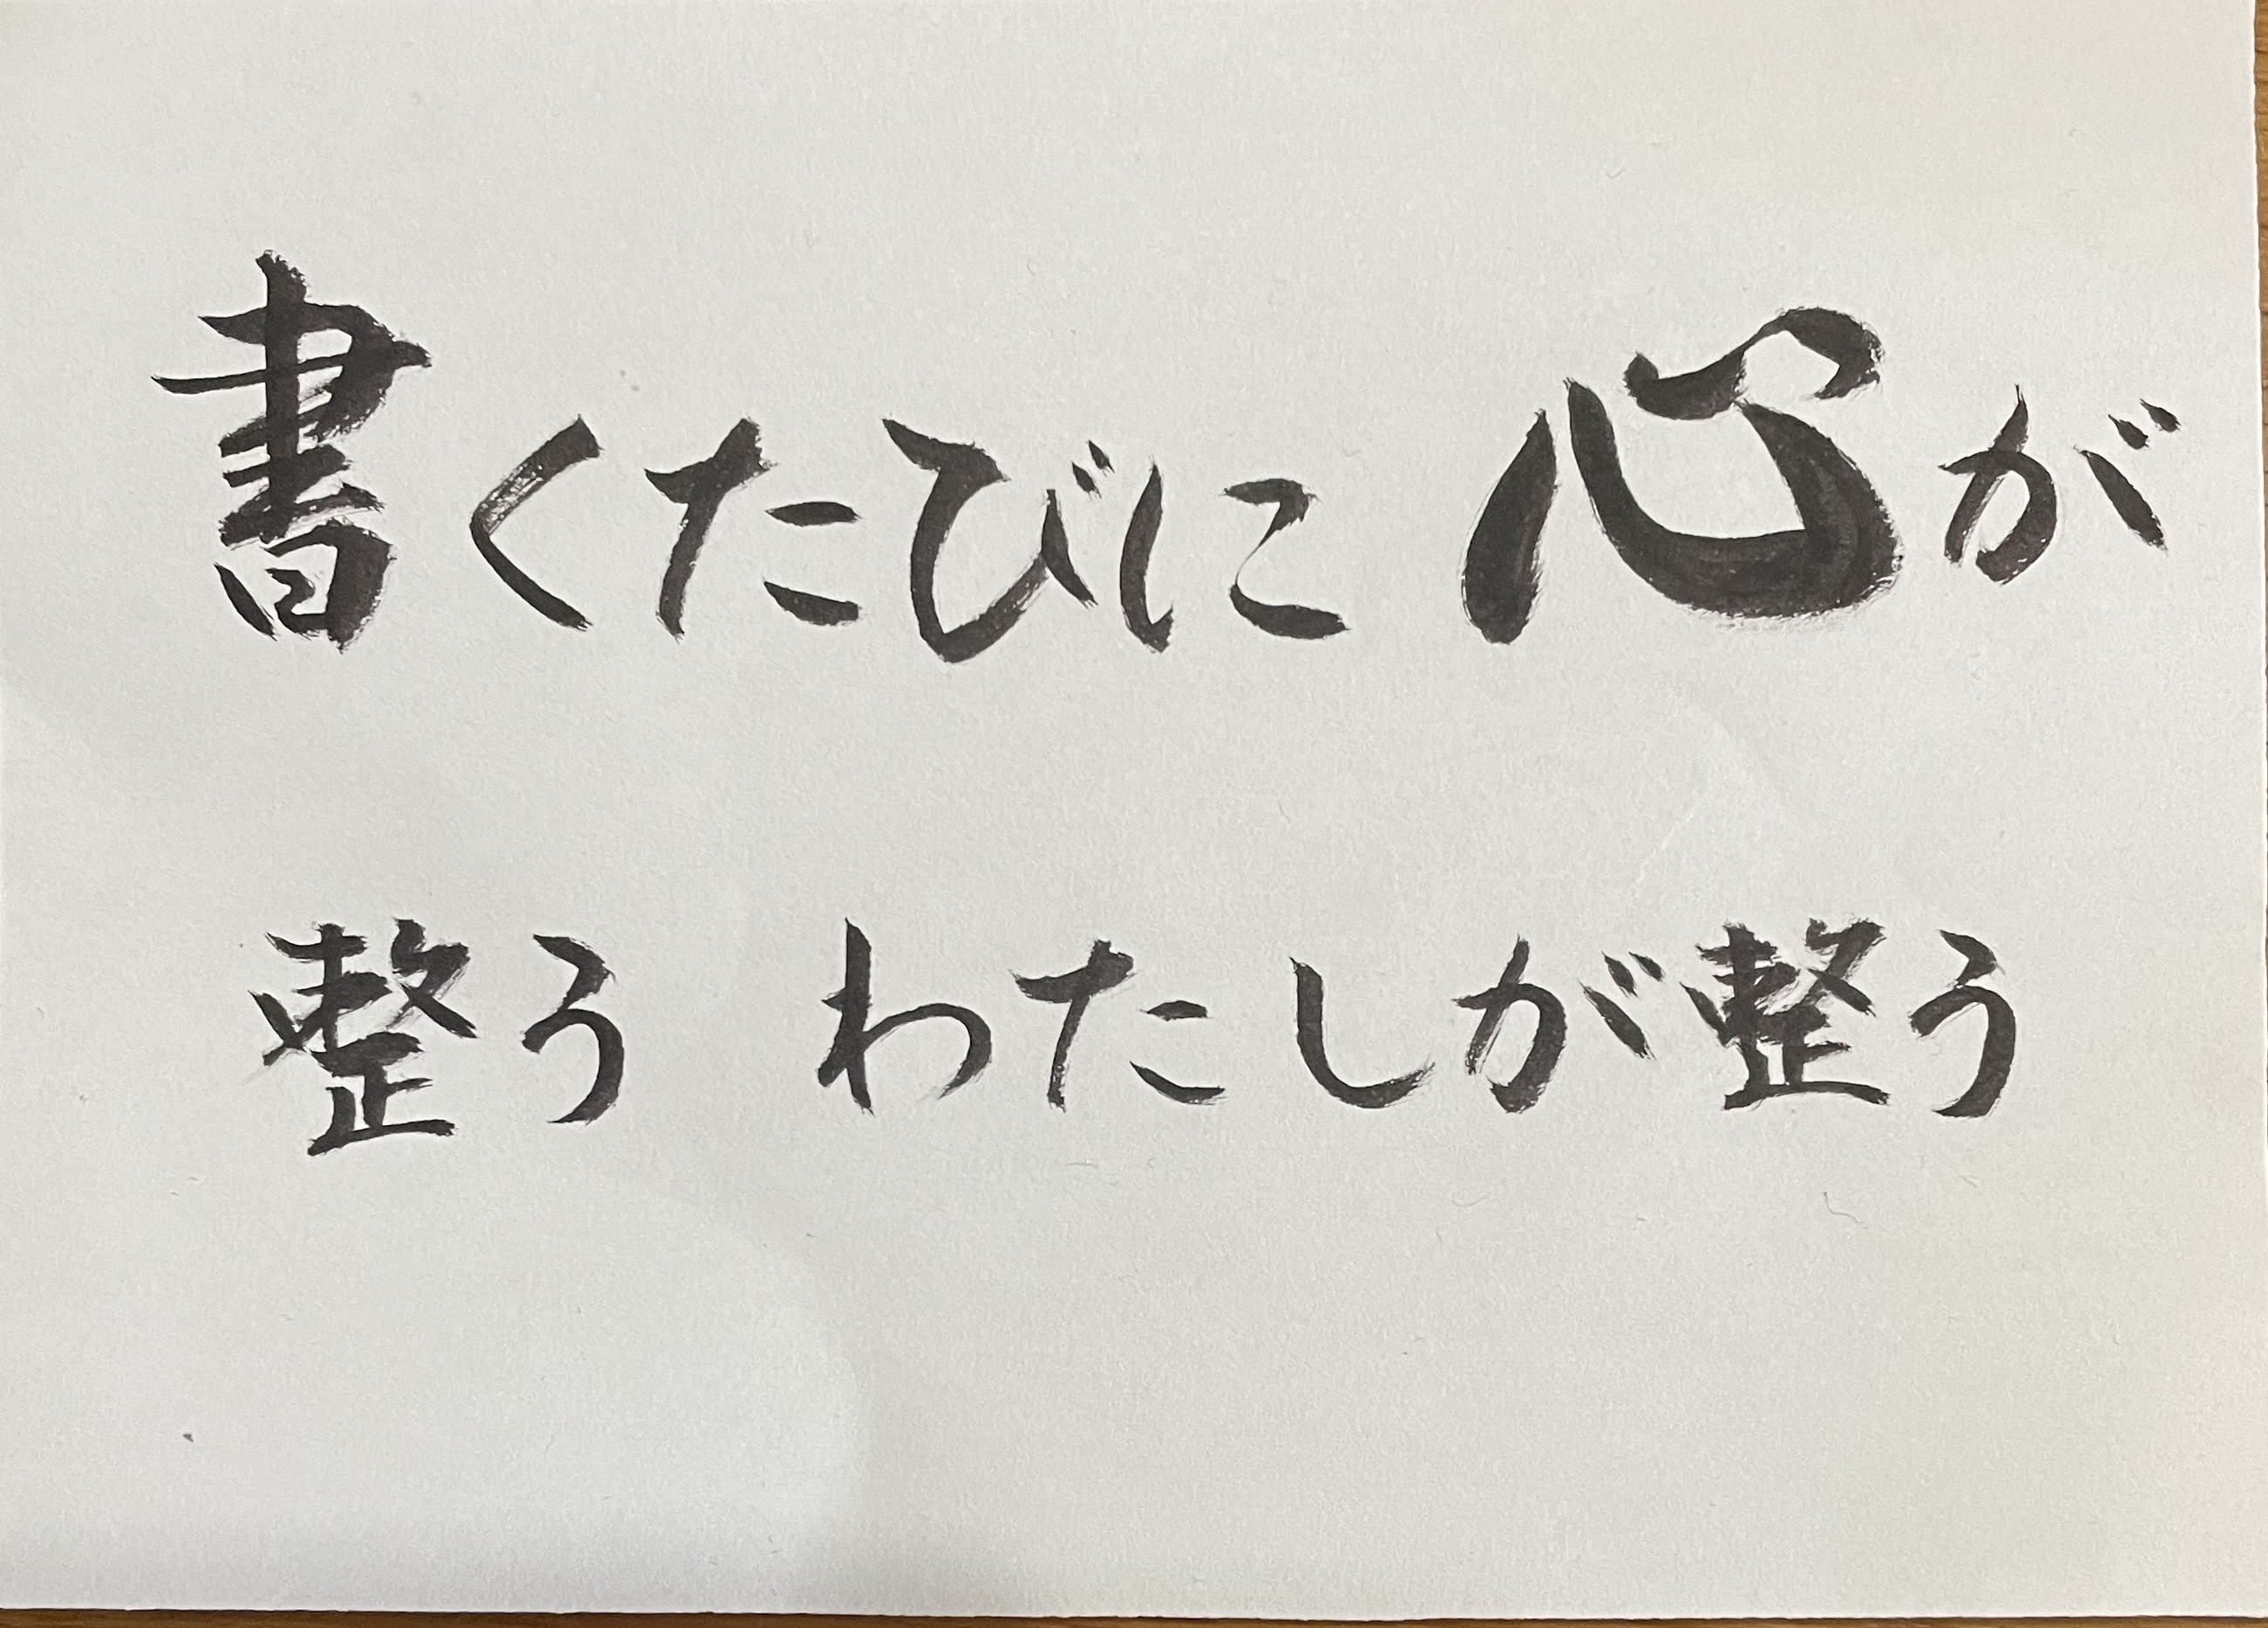 書くたびに 心が
整う わたしが整う